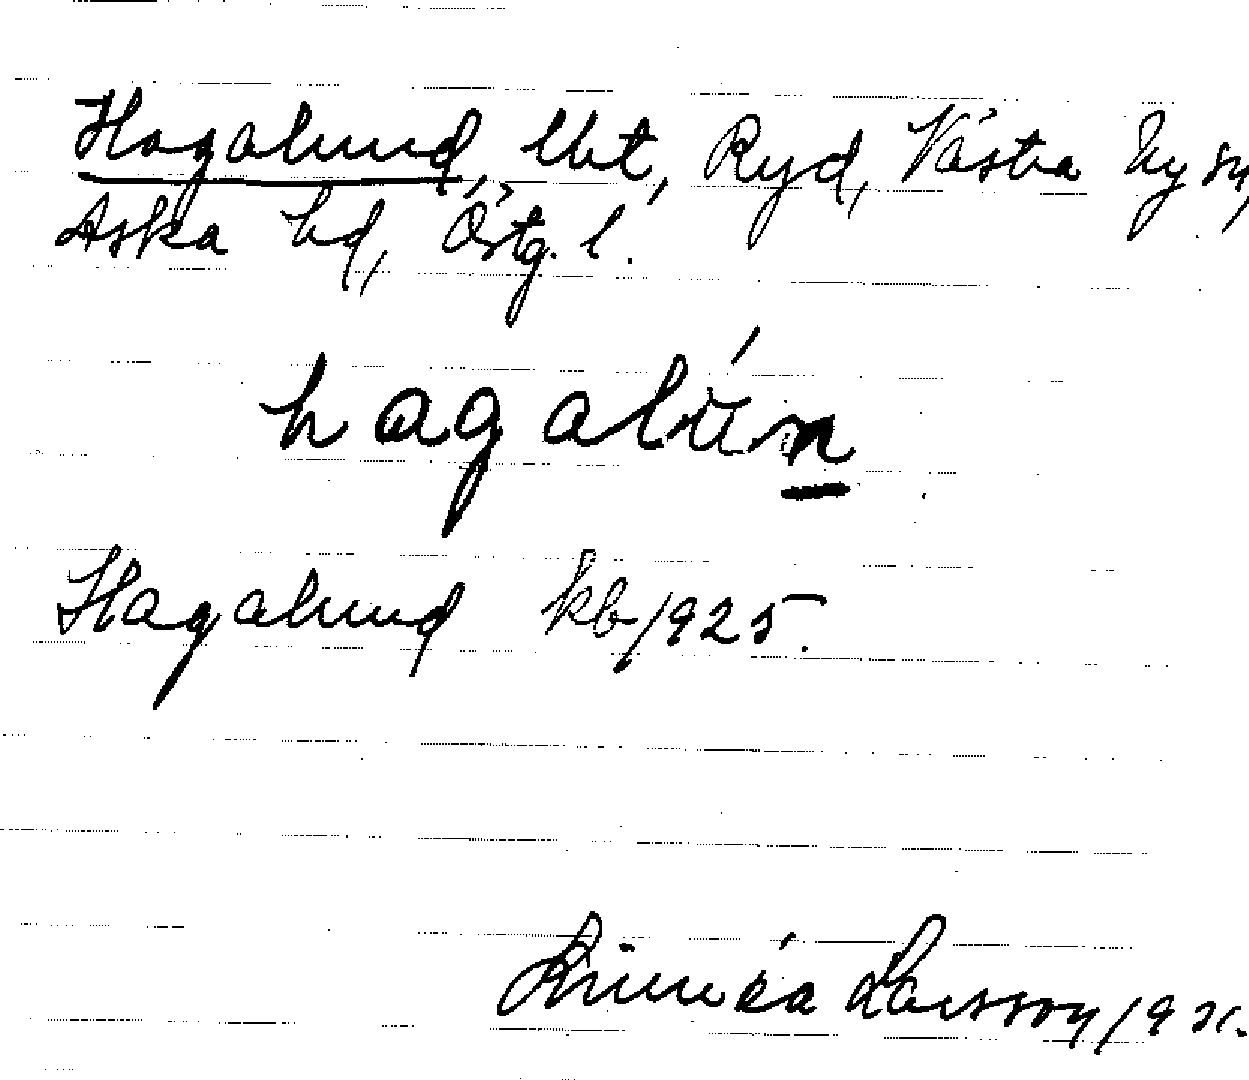 Hagalund, lht, Ryd, Västra Ny sn,
Aska hd, Östg. l.
hagalún
Hagalund kb 1925.
Linnéa Larsson, 19